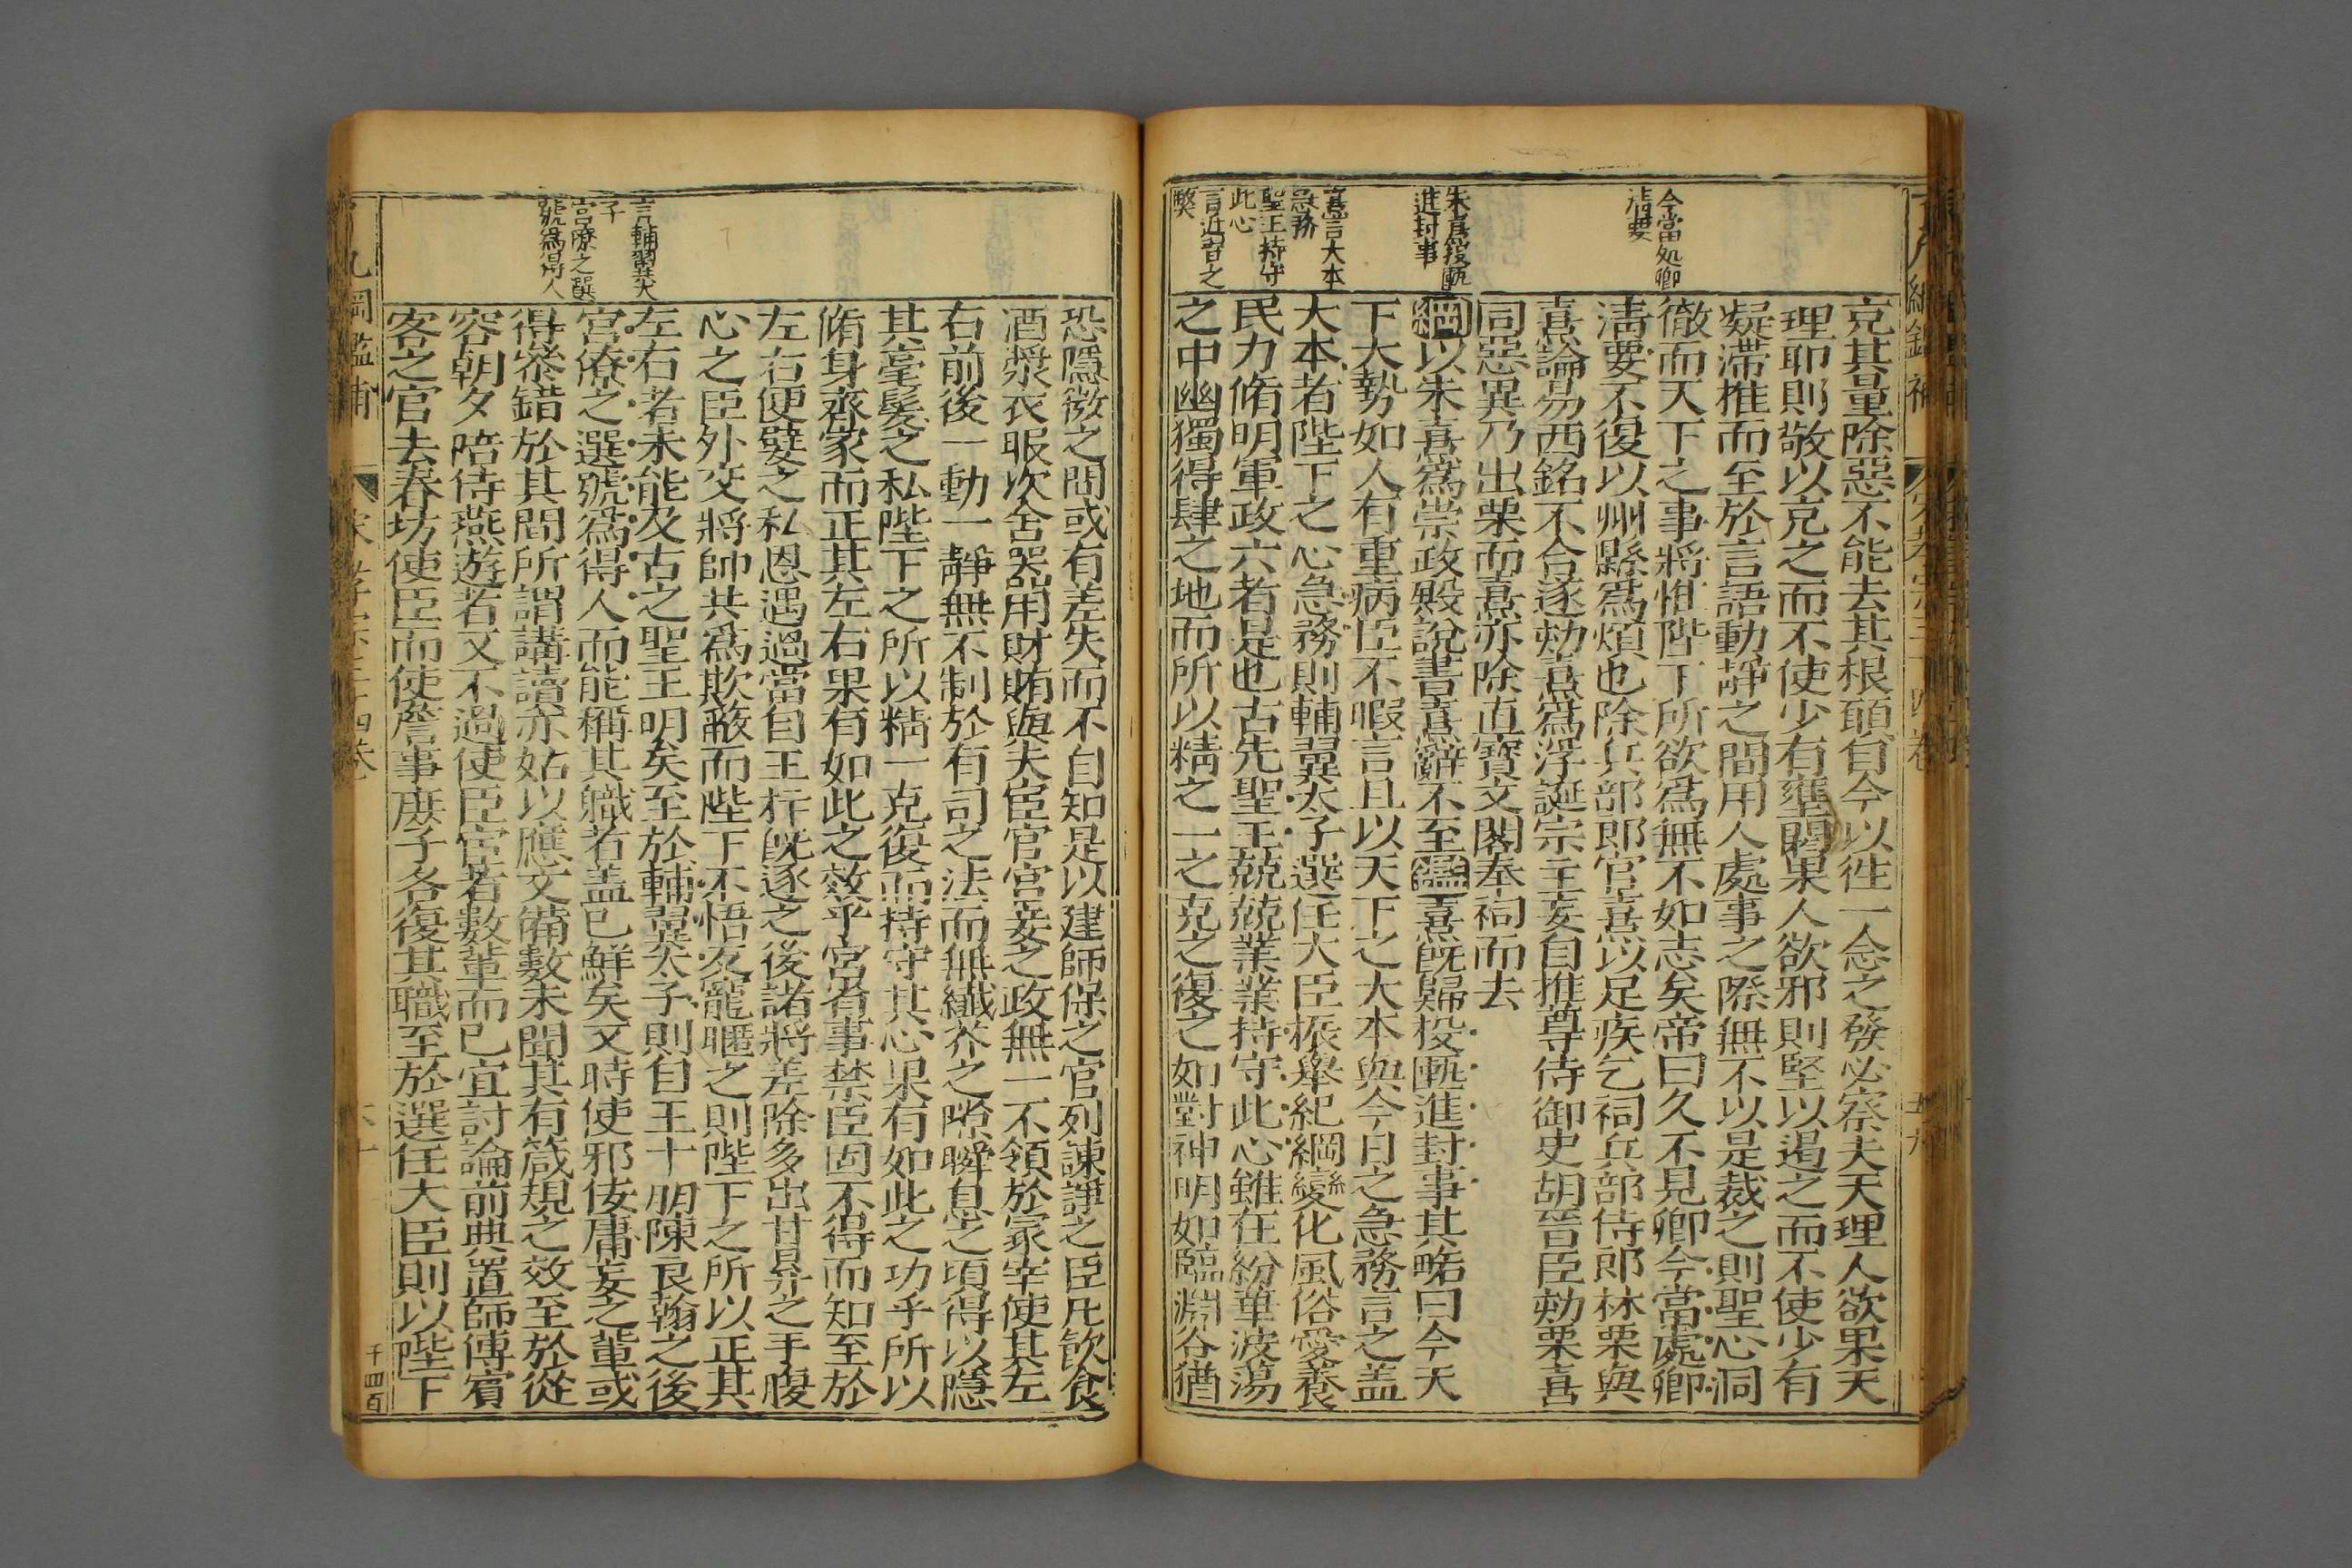 今當処卿
清要
朱熹投匭
進封事
熹言大本
急務
聖王持守
此心
言近習之
弊
克其量除惡不能去其根願自今以徃一念之發必察夫天理人欲果天
理耶則敬以克之而不使少有壅閼果人欲邪則堅以遏之而不使少有
凝滯推而至於言語動靜之間用人處事之際無不以是裁之則聖心洞
徹而天下之事將惟陛下所欲爲無不如志矣帝曰久不見卿今當處卿
清要不復以州縣爲煩也除兵部郎官熹以足疾乞祠兵部侍郎林栗與
熹論易西銘不合遂劾熹爲浮誕宗主妄自推尊侍御史胡晉臣劾栗喜
同惡異乃出栗而熹亦除直寶文閣奉祠而去
綱以朱熹爲崇政殿說書熹辭不至鑑熹旣歸投匭進封事其畧曰今天
下大勢如人有重病臣不暇言且以天下之大本與今日之急務言之盖
大本者陛下之心急務則輔翼太子選任大臣振舉紀綱變化風俗愛養
民力脩明軍政六者是也古先聖王兢兢業業持守此心雖在紛華波蕩
之中幽獨得肆之地而所以精之一之克之復之如對神明如臨淵谷猶
言輔翼太
子
宮僚之選
號爲得人
恐隱微之間或有差失而不自知是以建師保之官列諫諍之臣凡飲食
酒漿衣服次舍器用財賄與夫宦官宮妾之政無一不領於冡宰使其左
右前後一動一靜無不制於有司之法而無纖芥之隙瞬息之頃得以隱
其毫髮之私陛下之所以精一克復而持守其心果有如此之功乎所以
脩身齊家而正其左右果有如此之效乎宮省事禁臣固不得而知至於
左右便嬖之私恩遇過當自王抃旣逐之後諸將差除多出甘昪之手腹
心之臣外交將帥共爲欺蔽而陛下不悟友寵暱之則陛下之所以正其
左右者未能及古之聖王明矣至於輔翼太子則自王十朋陳良翰之後
宮僚之選號爲得人而能稱其職者盖已鮮矣又時使邪佞庸妄之輩或
得叅錯於其間所謂講讀亦姑以應文備數未聞其有箴規之效至於從
容朝夕陪侍燕遊者又不過使臣宦者數輩而已宜討論前典置師傅賓
客之官去春坊使臣而使詹事庶子各復其職至於選任大臣則以陛下
九綱鑑補
宋孝宗三十四卷
六十
千四百